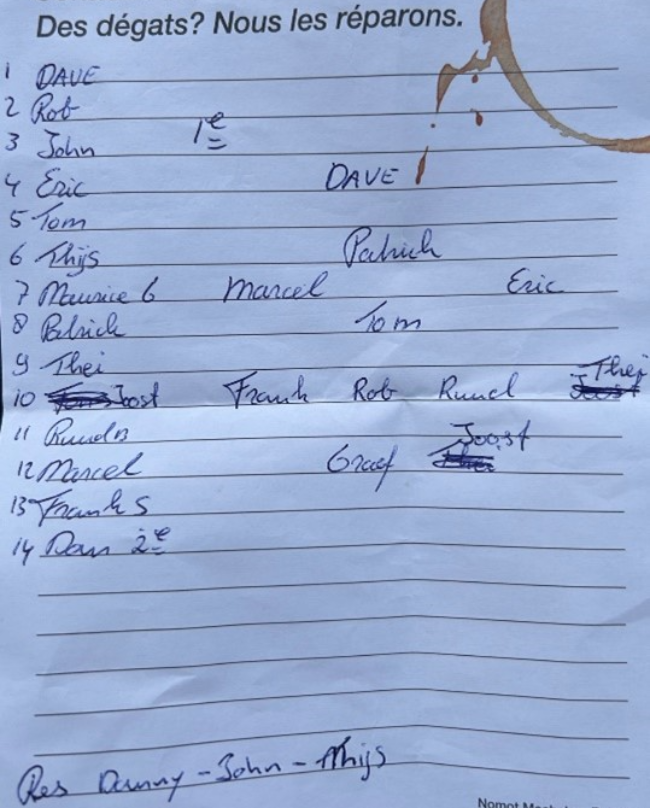 Des dégats? Nous les réparons.
1 DAVE
2 Rob
3 John 1e
4 Eric DAVE
5 Tom
6 Thijs Patrick
7 Maurice G Marcel Eric
8 Patrick Tom
9 Thei
10 Joost Frank Rob Ruud Thei
11 Ruud B Joost
12 Marcel Graef
13 Frank S
14 Dan 2e
Res Danny - John - Thijs